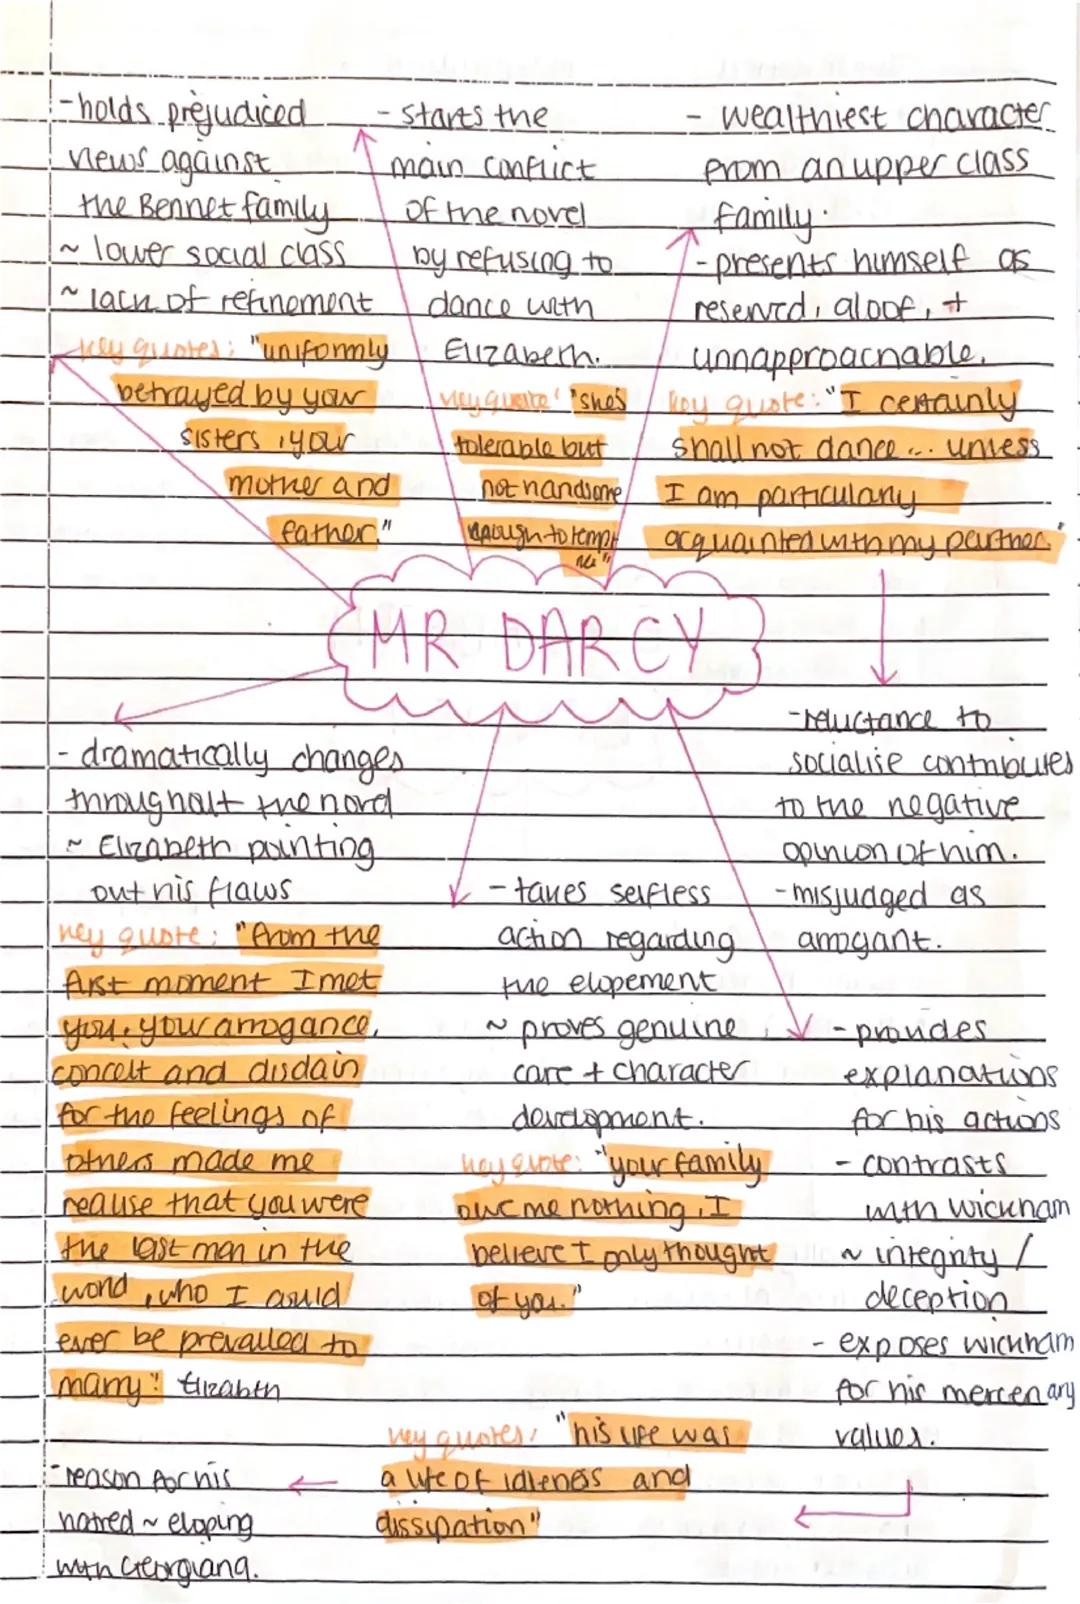 -holds prejudiced
views against
the Bennet family
~ lower social class
~ lack of refinement
key quotes: "uniformly
betrayed by your
sisters, your
mother and
father."
- starts the
main conflict
of the novel
by refusing to
dance with
Elizabeth.
key quote: "she's
tolerable but
not handsome
enough to tempt
me"
- wealthiest character
from an upper class
family.
- presents himself as
reserved, aloof, +
unnapproachable.
key quote: "I certainly
shall not dance... unless
I am particulary
acquainted with my partner."
MR DARCY
-reluctance to
socialise contributes
to the negative
opinion of him.
-misjudged as
arrogant.
- dramatically changes
throughout the novel
~ Elizabeth pointing
out his flaws
key quote: "From the
first moment I met
you, your arrogance,
conceit and disdain
for the feelings of
others made me
realise that you were
the last man in the
world, who I could
ever be prevailed to
marry." Elizabth
- takes selfless
action regarding
the elopement
~ proves genuine
care + character
development.
key quote: "your family
owe me nothing, I
believe I only thought
of you."
- provides
explanations
for his actions
- contrasts
with wickham
~ integrity /
deception
- exposes wickham
for his mercenary
values.
key quotes: "his life was
a life of idleness and
dissipation"
-reason for his
hatred ~ eloping
with Georgiana.